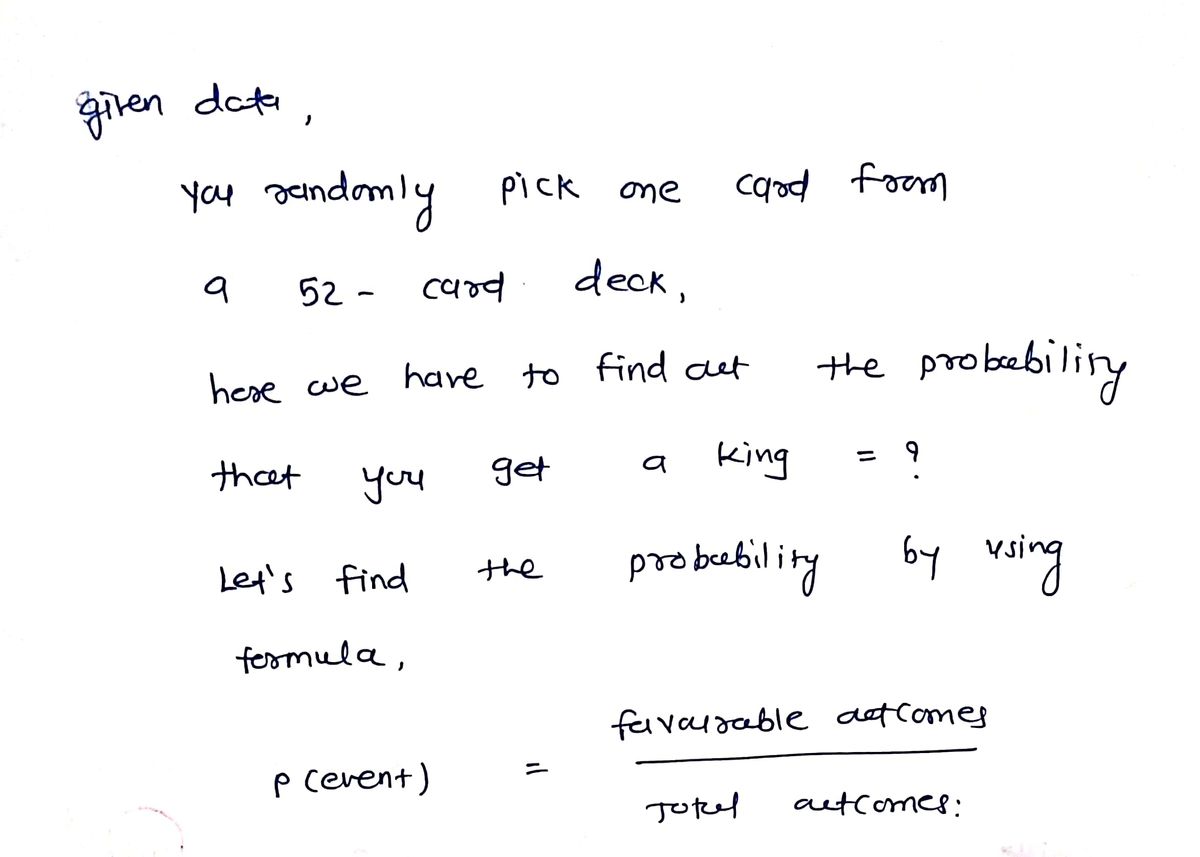 given data,
you randomly pick one card from
a 52 - card deck,
here we have to find out the probability
that you get a king = ?
Let's find the probability by using
formula,
P(event) = favourable outcomes
Total outcomes: